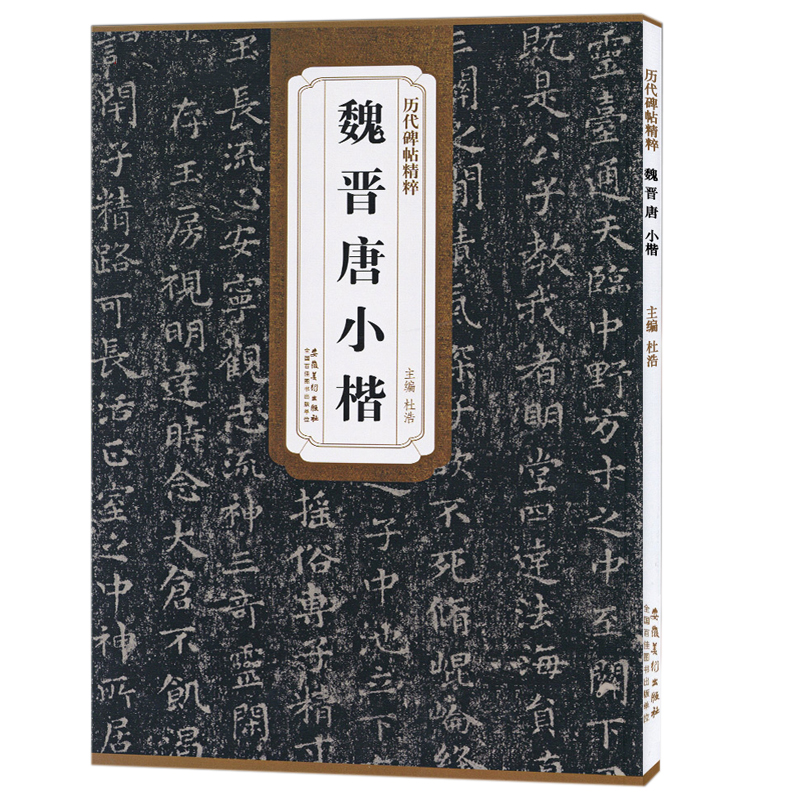 历代碑帖精粹
魏晋唐小楷
主编 杜浩
安徽美术出版社
全国百佳图书出版单位
靈臺通天臨中野方寸之中至閞下
既是公子教我者明堂四達法海負
三關之間精氣深子欲不死脩崐崘絳
之子中池立下
摇俗專子精寸
玉長流心安寧觀志流神三奇靈閑
存玉房視明達時念大倉不飢渴
言閑子精路可長活正室之中神所居
历代碑帖精粹 魏晋唐 小楷 主编 杜浩
安徽美术出版社
全国百佳图书出版单位